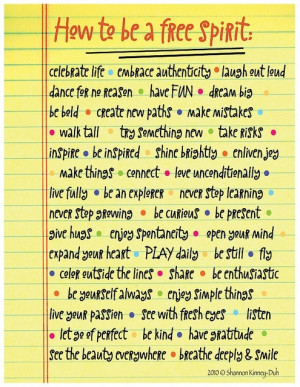 How to be a free spirit:
celebrate life • embrace authenticity • laugh out loud
dance for no reason • have FUN • dream big •
be bold • create new paths • make mistakes •
• walk tall • try something new • take risks •
inspire • be inspired • shine brightly • enliven joy
• make things • connect • love unconditionally •
live fully • be an explorer • never stop learning •
never stop growing • be curious • be present •
give hugs • enjoy spontaneity • open your mind
expand your heart • PLAY daily • be still • fly
• color outside the lines • share • be enthusiastic
• be yourself always • enjoy simple things •
live your passion • see with fresh eyes • listen
• let go of perfect • be kind • have gratitude •
see the beauty everywhere • breathe deeply & smile
2010 © Shannon Kinney-Duh